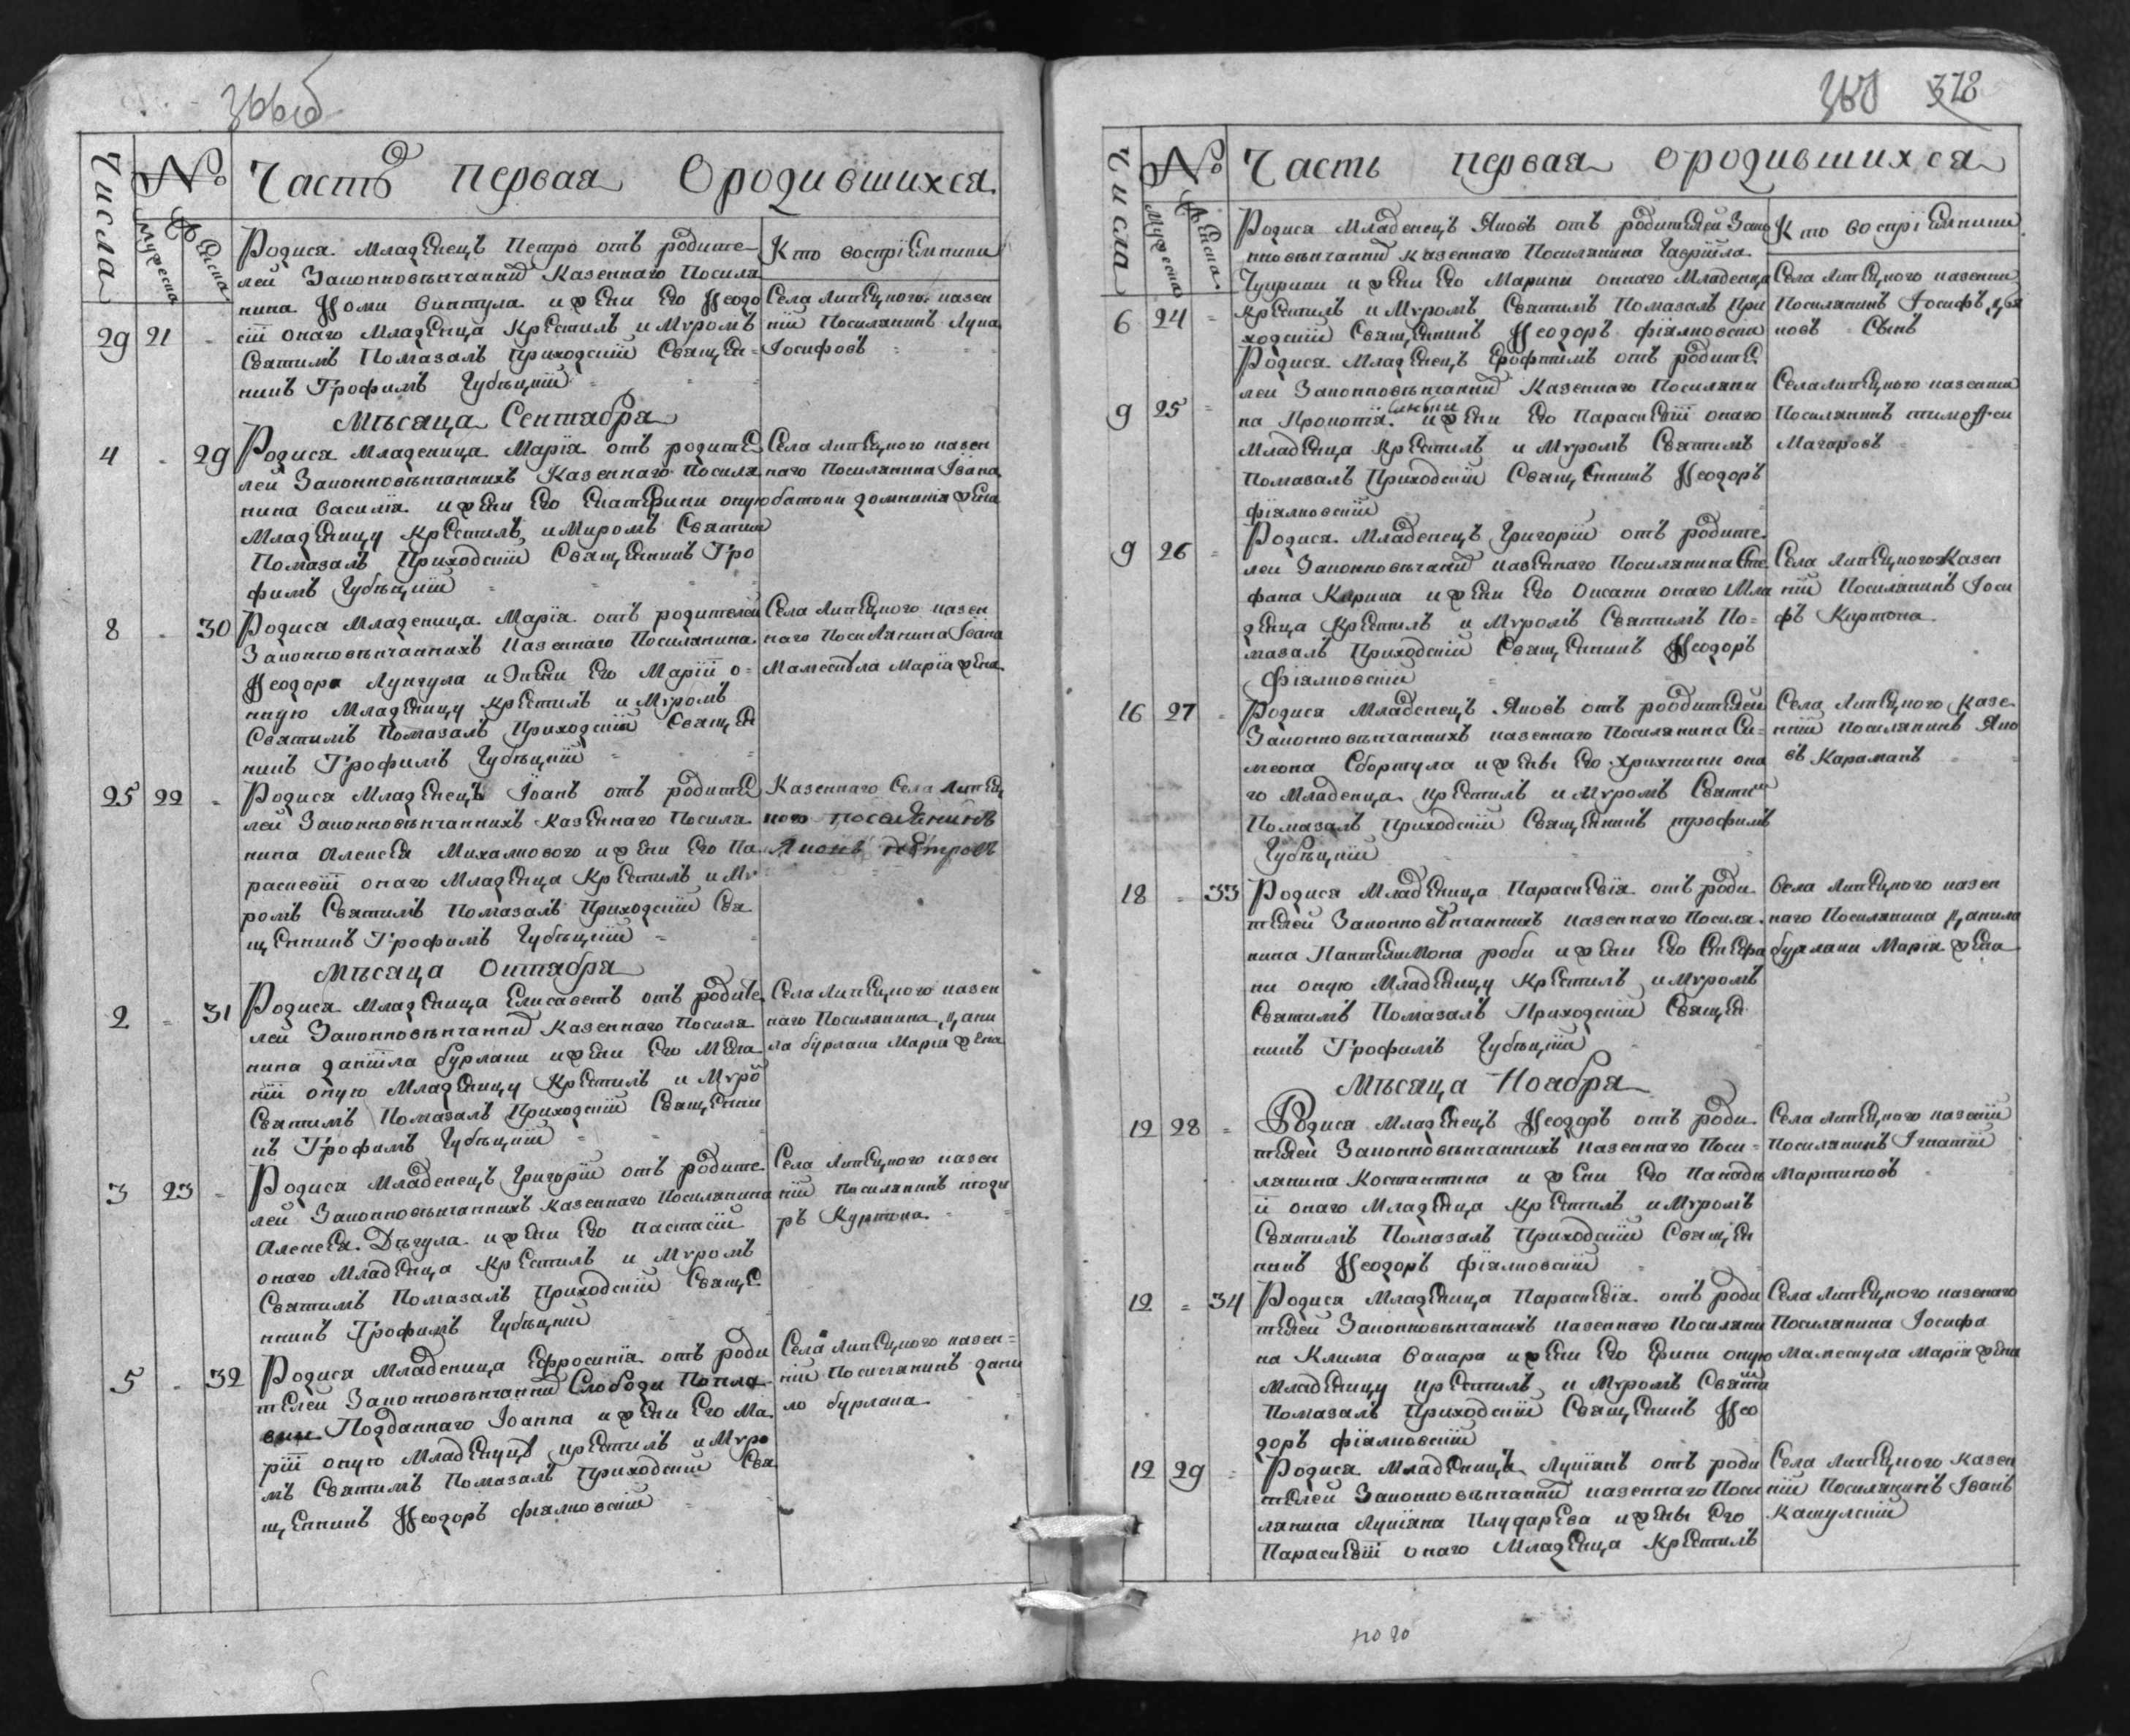 366об
Числа
№
Мужеска
Женска
Часть первая О родившихся
Родися Младенецъ Петро отъ родите-
лей Законновѣнчанны Казеннаго Посиля
нина Ѳоми Винтула и жени Его Ѳеодо
29 21 сіи онаго Младенца Крестилъ и Мѵромъ
Святимъ Помазалъ Приходскій Священ-
никъ Трофимъ Губѣцкій
Кто воспріемники
Села Липецкого казен
ній Посилянинъ Лука
Іосифовъ
Мѣсяца Сентября
4 29 Родися Младеница Марія отъ родите
лей Законновѣнчаннихъ Казеннаго Посиля
нина Василія и жени Его Екатерини оную
Младеницу Крестилъ и Миромъ Святим
Помазалъ Приходскій Священникъ Тро
фимъ Губѣцкій
Села Липецкого казен
наго Посилянина Івана
батоки домникія жена
8 30 Родися Младеница Марія отъ родителей
Законновѣнчаннихъ Казеннаго Посилянина
Ѳеодора Лунгула и Жени Его Маріи о-
ную Младеницу Крестилъ и Мѵромъ
Святимъ Помазалъ Приходскій Священ
никъ Трофимъ Губѣцкій
Села Липецкого казен
наго Посилянина Івана
Марія жена
25 22 Родися Младенецъ Іоанъ отъ родите
лей Законновѣнчаннихъ Казеннаго Посиля
нина Алексея Михалкового и жени Его Па
раскевіи онаго Младенца Крестилъ и Мѵ
ромъ Святимъ Помазалъ Приходскій Свя
щенникъ Трофимъ Губѣцкій
Казеннаго Села Липец
кого поселенинъ
Яковъ Петровъ
Мѣсяца Октября
2 31 Родися Младеница Елисаветъ отъ родите
лей Законновѣнчанны Казеннаго Посиля
нина даніила бурлаки и жени Его Мела
ніи оную Младеницу Крестилъ и Мѵро
Святимъ Помазалъ Приходскій Священни
къ Трофимъ Губѣцкій
Села Липецкого казен
наго Посилянина дани
ла бурлаки Марія жена
3 23 Родися Младенецъ Григорій отъ родите
лей Законновѣнчаннихъ Казеннаго Посилянина
Алексея Дѣгула и жени Его Настасіи
онаго Младенца Крестилъ и Мѵромъ
Святимъ Помазалъ Приходскій Свяще
нникъ Трофимъ Губѣцкій
Села Липецкого казен
ній Посилянинъ тодо
ръ Куртока
5 32 Родися Младеница Ефросинія отъ роди
телей Законновѣнчанны Слободи
Подданнаго Іоанна и жени Его Ма
ріи оную Младеницу крестилъ и Мѵро
мъ Святимъ Помазалъ Приходскій Свя
щенникъ Ѳеодоръ фіялковскій
Села Липецкого казен-
ній Посилянинъ дани
ло бурлака
378
Числа
№
Мужеска
Женска
Часть первая о родившихся
Родися Младенецъ Яковъ отъ родителей Зако
нновѣнчанны Казеннаго Посилянина Гавріила
Чуприни и жени Его Марини оннаго Младенца
6 24 крестилъ и Мѵромъ Святимъ Помазалъ При
ходскій Священникъ Ѳеодоръ фіялковски
Кто воспріемники
Села Липецкого казенни
Посилянинъ Іосифъ
новъ Синъ
Родися Младенецъ Ерофтимъ отъ родите
лей Законновѣнчанны Казеннаго Посиляни
9 25 на и жени Его Параскевіи онаго
Младенца Крестилъ и Мѵромъ Святимъ
Помазалъ Приходскій Священникъ Ѳеодоръ
фіялковскій
Села Липецкого казенни
Посилянинъ тимоѳеи
Магаровъ
Родися Младенецъ Григорій отъ родите
9 26 лей Законновѣнчаны казеннаго Посилянина Сте
фана Карина и жени Его Оксани онаго Мла
денца Крестилъ и Мѵромъ Святимъ По-
мазалъ Приходскій Священникъ Ѳеодоръ
Фіялковскій
Села Липецкого Казен
ній Посилянинъ Іоси
фъ Куртока
16 27 Родися Младенецъ Яковъ отъ роодителей
Законновѣнчаннихъ казеннаго Посилянина Си-
меона Сбортула и жены Его Христини она
го Младенца крестилъ и Мѵромъ Святи
Помазалъ Приходскій Священникъ трофимъ
Губѣцкій
Села Липецкого Казе
нній посилянинъ Яко
въ Караманъ
18 33 Родися Младеница Параскевія отъ роди
телей Законновѣнчаннихъ казеннаго Посиля
нина Пантелимона роби и жени Его Стефа
ни оную Младеницу Крестилъ и Мѵромъ
Святимъ Помазалъ Приходскій Священ
никъ Трофимъ Губѣцкій
Села Липецкого казен
наго Посилянина данила
бурлаки Марія жена
Мѣсяца Ноября
12 28 Родися Младенецъ Ѳеодоръ отъ роди
телей Законновѣнчаннихъ казеннаго Поси-
лянина Костантина и жени Его
и онаго Младенца Крестилъ и Мѵромъ
Святимъ Помазалъ Приходскій Священ
никъ Ѳеодоръ фіялковскій
Села Липецкого казеній
посилянинъ Ігнатій
Мартиновъ
12 34 Родися Младеница Параскевія отъ роди
телей Законновѣнчанихъ казеннаго Посиляни
на Клима Вакара и жени Его Ерини оную
Младеницу крестилъ и Мѵромъ Святи
Помазалъ Приходскій Священикъ Ѳео
доръ фіялковскій
Села Липецкого казенаго
Посилянина Іосифа
Марія жена
12 29 Родися Младеницъ Лукіянъ отъ роди
телей Законновѣнчанны казеннаго Поси
лянина Лукіяна Плударева и жены Его
Параскевіи онаго Младенца Крестилъ
Села Липецкого Казен
ній Посилянинъ Іванъ
Кашулскій